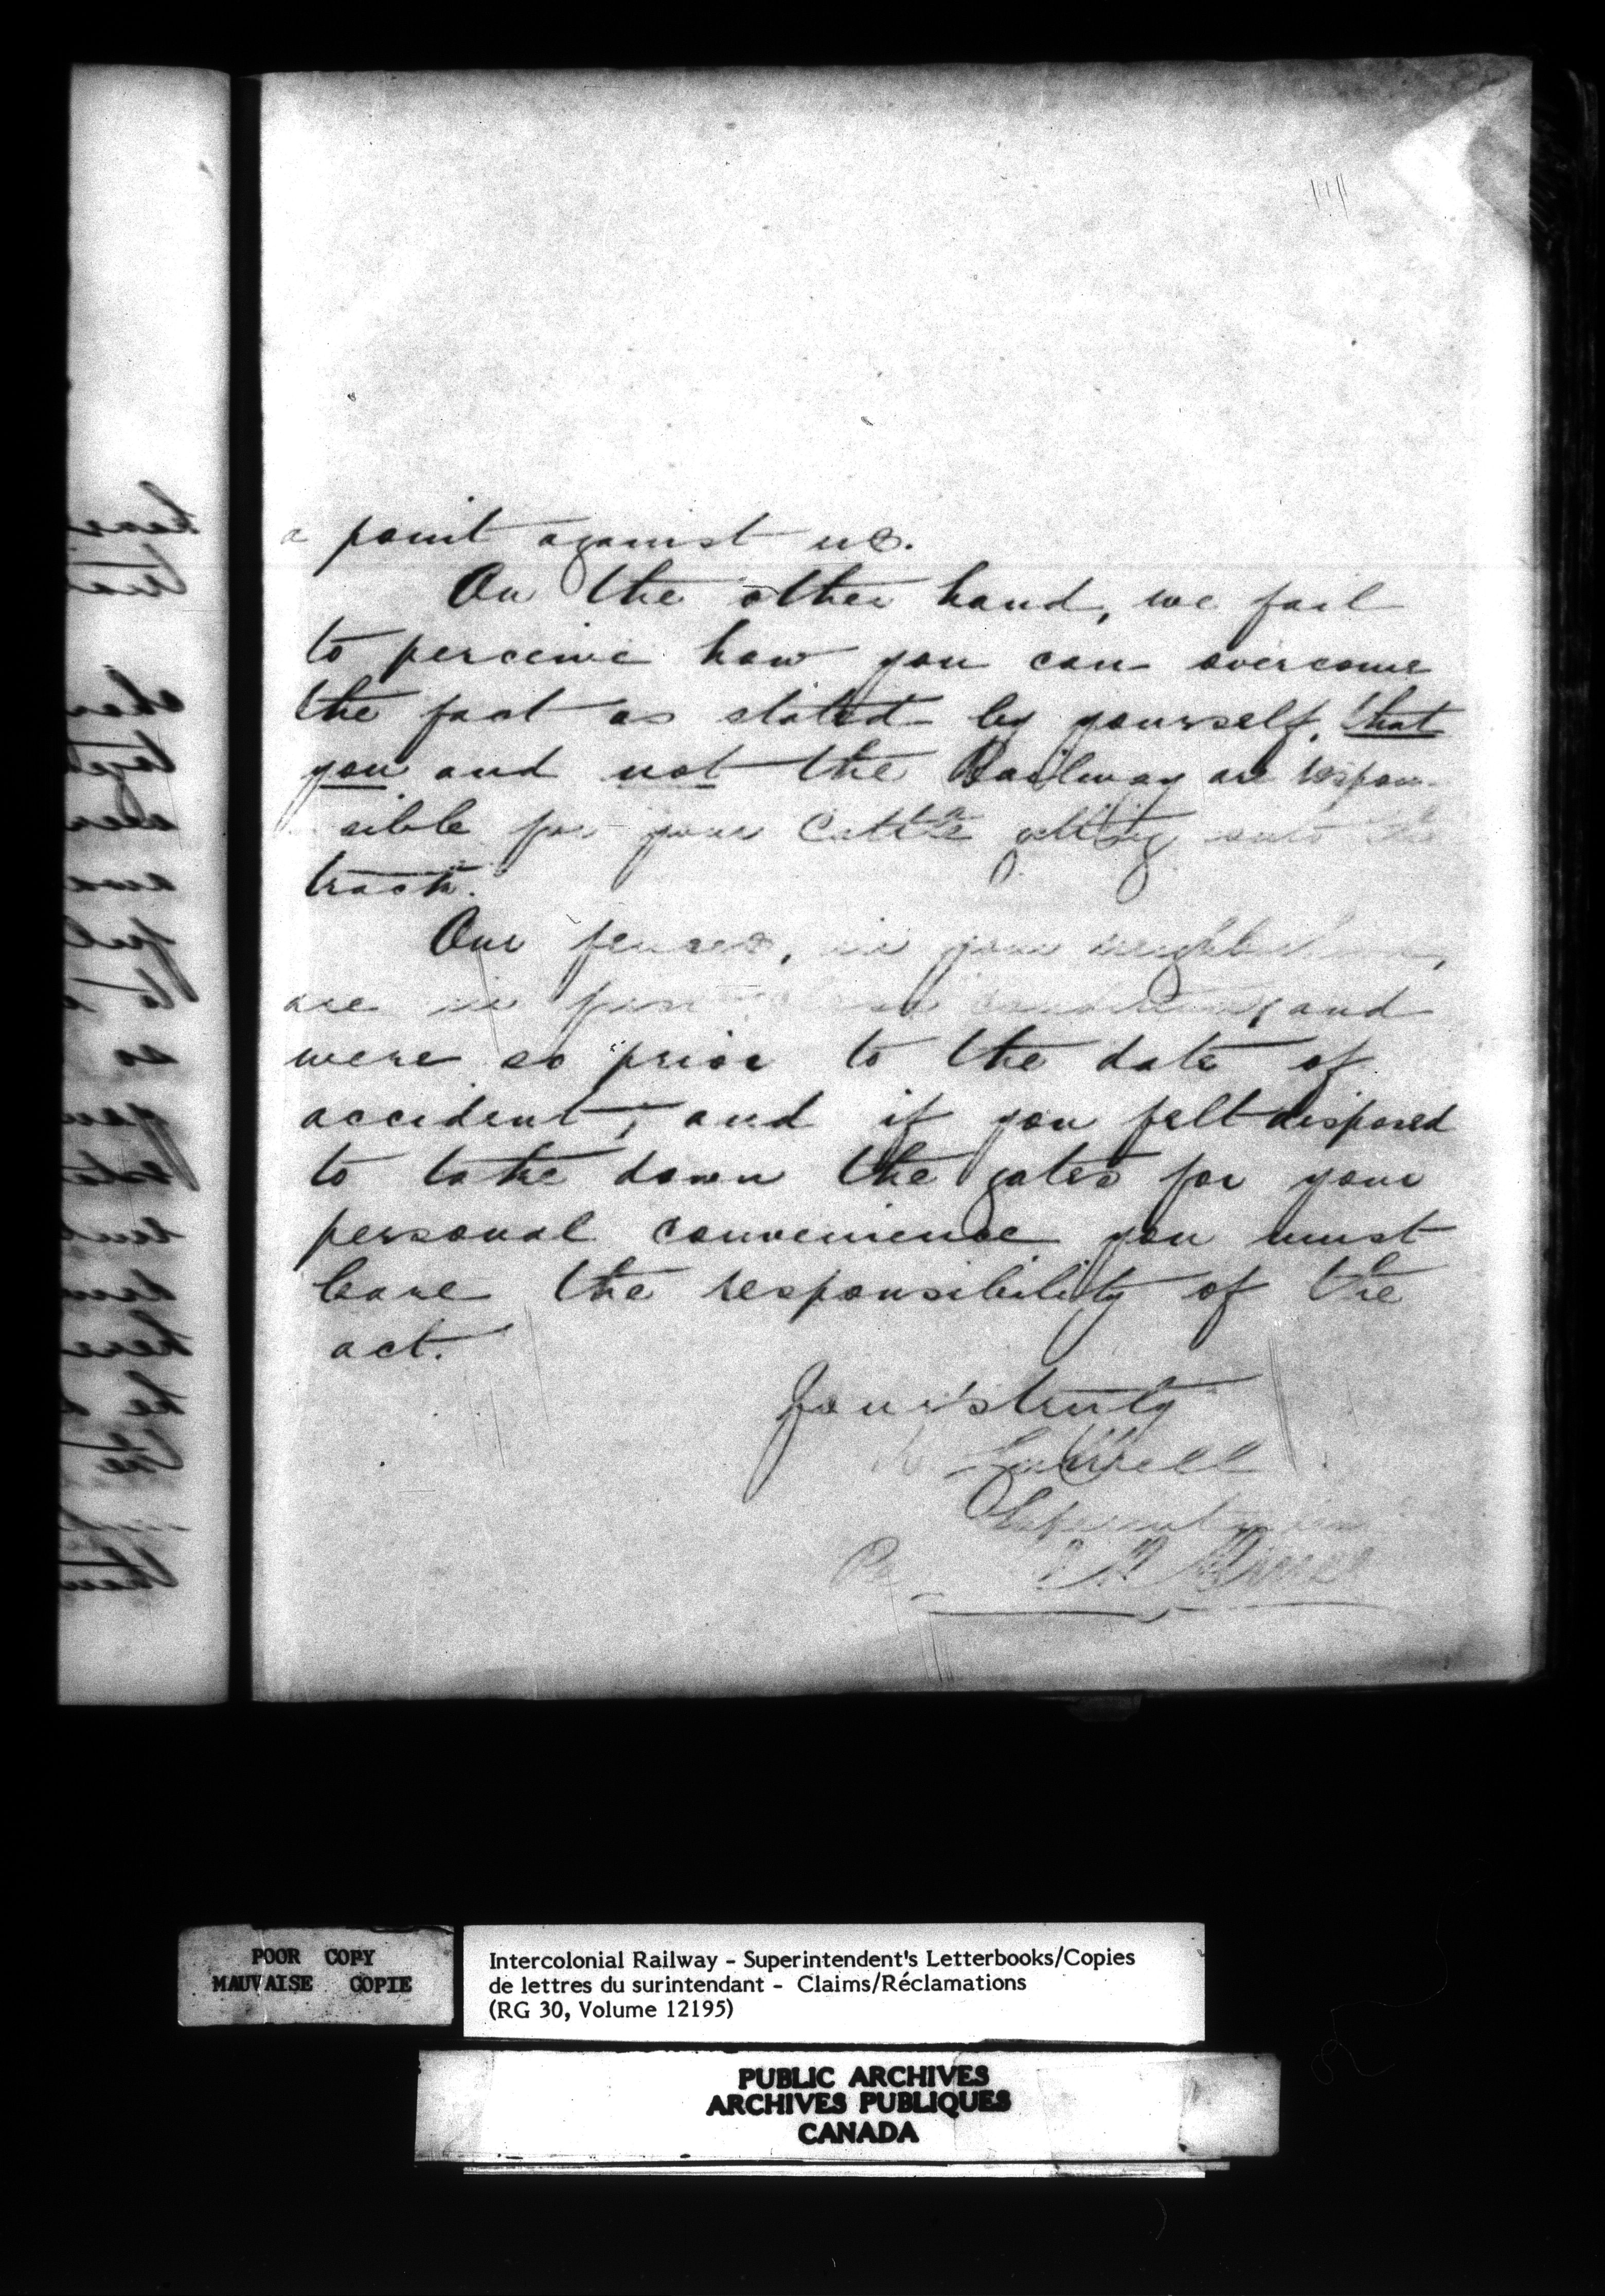 a point against us.
On the other hand, we fail
to perceive how you can overcome
the fact as stated by yourself, that
you and not the Railway are respon-
sible for your Cattle getting onto the
track.
Our fences, in your neighborhood,
are in first class condition, and
were so prior to the date of
accident, and if you felt disposed
to take down the gates for your
personal convenience you must
bear the responsibility of the
act.
Yours truly
Luttrell
Superintendent
POOR COPY
MAUVAISE COPIE
Intercolonial Railway - Superintendent's Letterbooks/Copies
de lettres du surintendant - Claims/Réclamations
(RG 30, Volume 12195)
PUBLIC ARCHIVES
ARCHIVES PUBLIQUES
CANADA